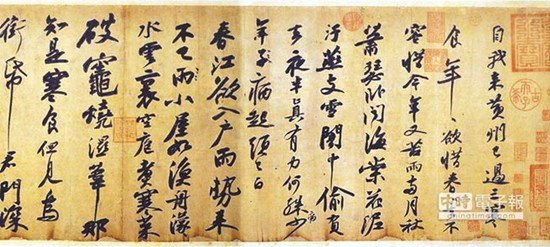 自我来黄州已過三寒
食年〻欲惜春〻去不
容惜今年又苦雨两月秋
蕭瑟卧聞海棠花泥
汙燕支雪闇中偷負
去夜半真有力何殊病少
年子病起須已白
春江欲入戶雨勢来
不已雨小屋如漁舟濛〻
水雲裏空庖煮寒菜
破竈燒濕葦那
知是寒食但見烏
銜帋 君門深
中時電子報
chinatimes.com